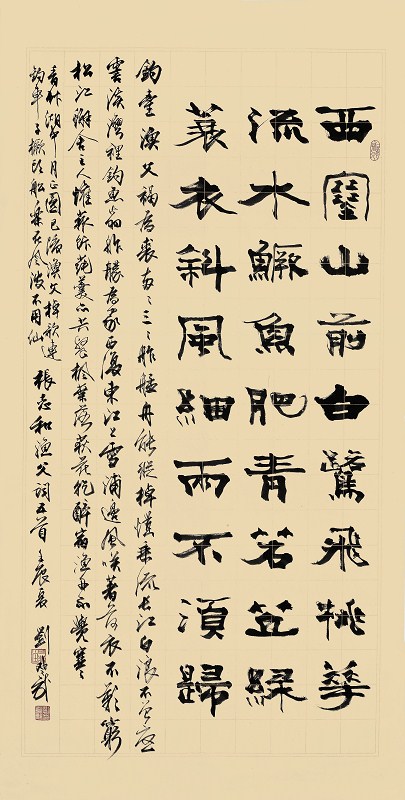 西塞山前白鷺飛桃華
流水鱖魚肥青箬笠緑
蓑衣斜風細雨不須歸
釣臺漁父褐為裘兩〻三〻舴艋舟能縱棹慣乘流長江白浪不曾憂
霅溪灣裡釣魚翁舴艋為家西復東江上雪浦邊風笑著荷衣不嘆窮
松江蟹舍主人歡菰飯蓴羹亦共餐楓葉落荻花乾醉宿漁舟不覺寒
青草湖中月正圓巴陵漁父棹歌連
釣車子橛頭船樂在風波不用仙
張志和漁父詞五首 壬辰夏 劉